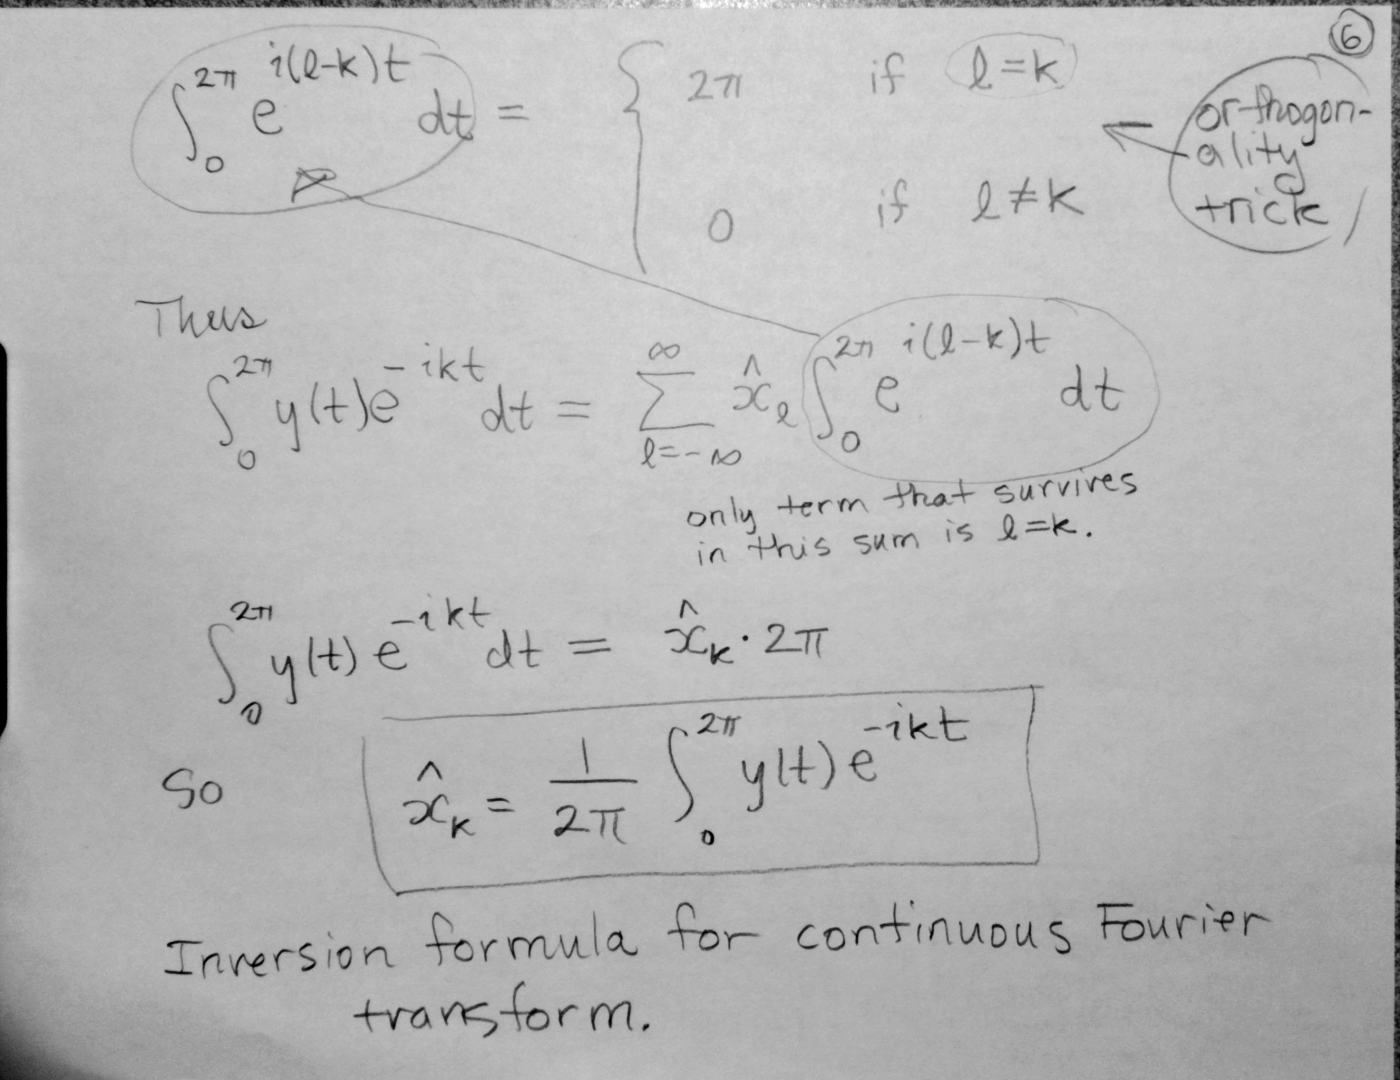 ⑥
∫₀^{2π} e^{i(ℓ-k)t} dt = { 2π if ℓ=k
0 if ℓ≠k
← orthogon-
ality
trick
Thus
∫₀^{2π} y(t)e^{-ikt} dt = ∑_{ℓ=-∞}^{∞} x̂_ℓ ∫₀^{2π} e^{i(ℓ-k)t} dt
only term that survives
in this sum is ℓ=k.
∫₀^{2π} y(t) e^{-ikt} dt = x̂_k · 2π
So x̂_k = 1/2π ∫₀^{2π} y(t) e^{-ikt}
Inversion formula for continuous Fourier
transform.